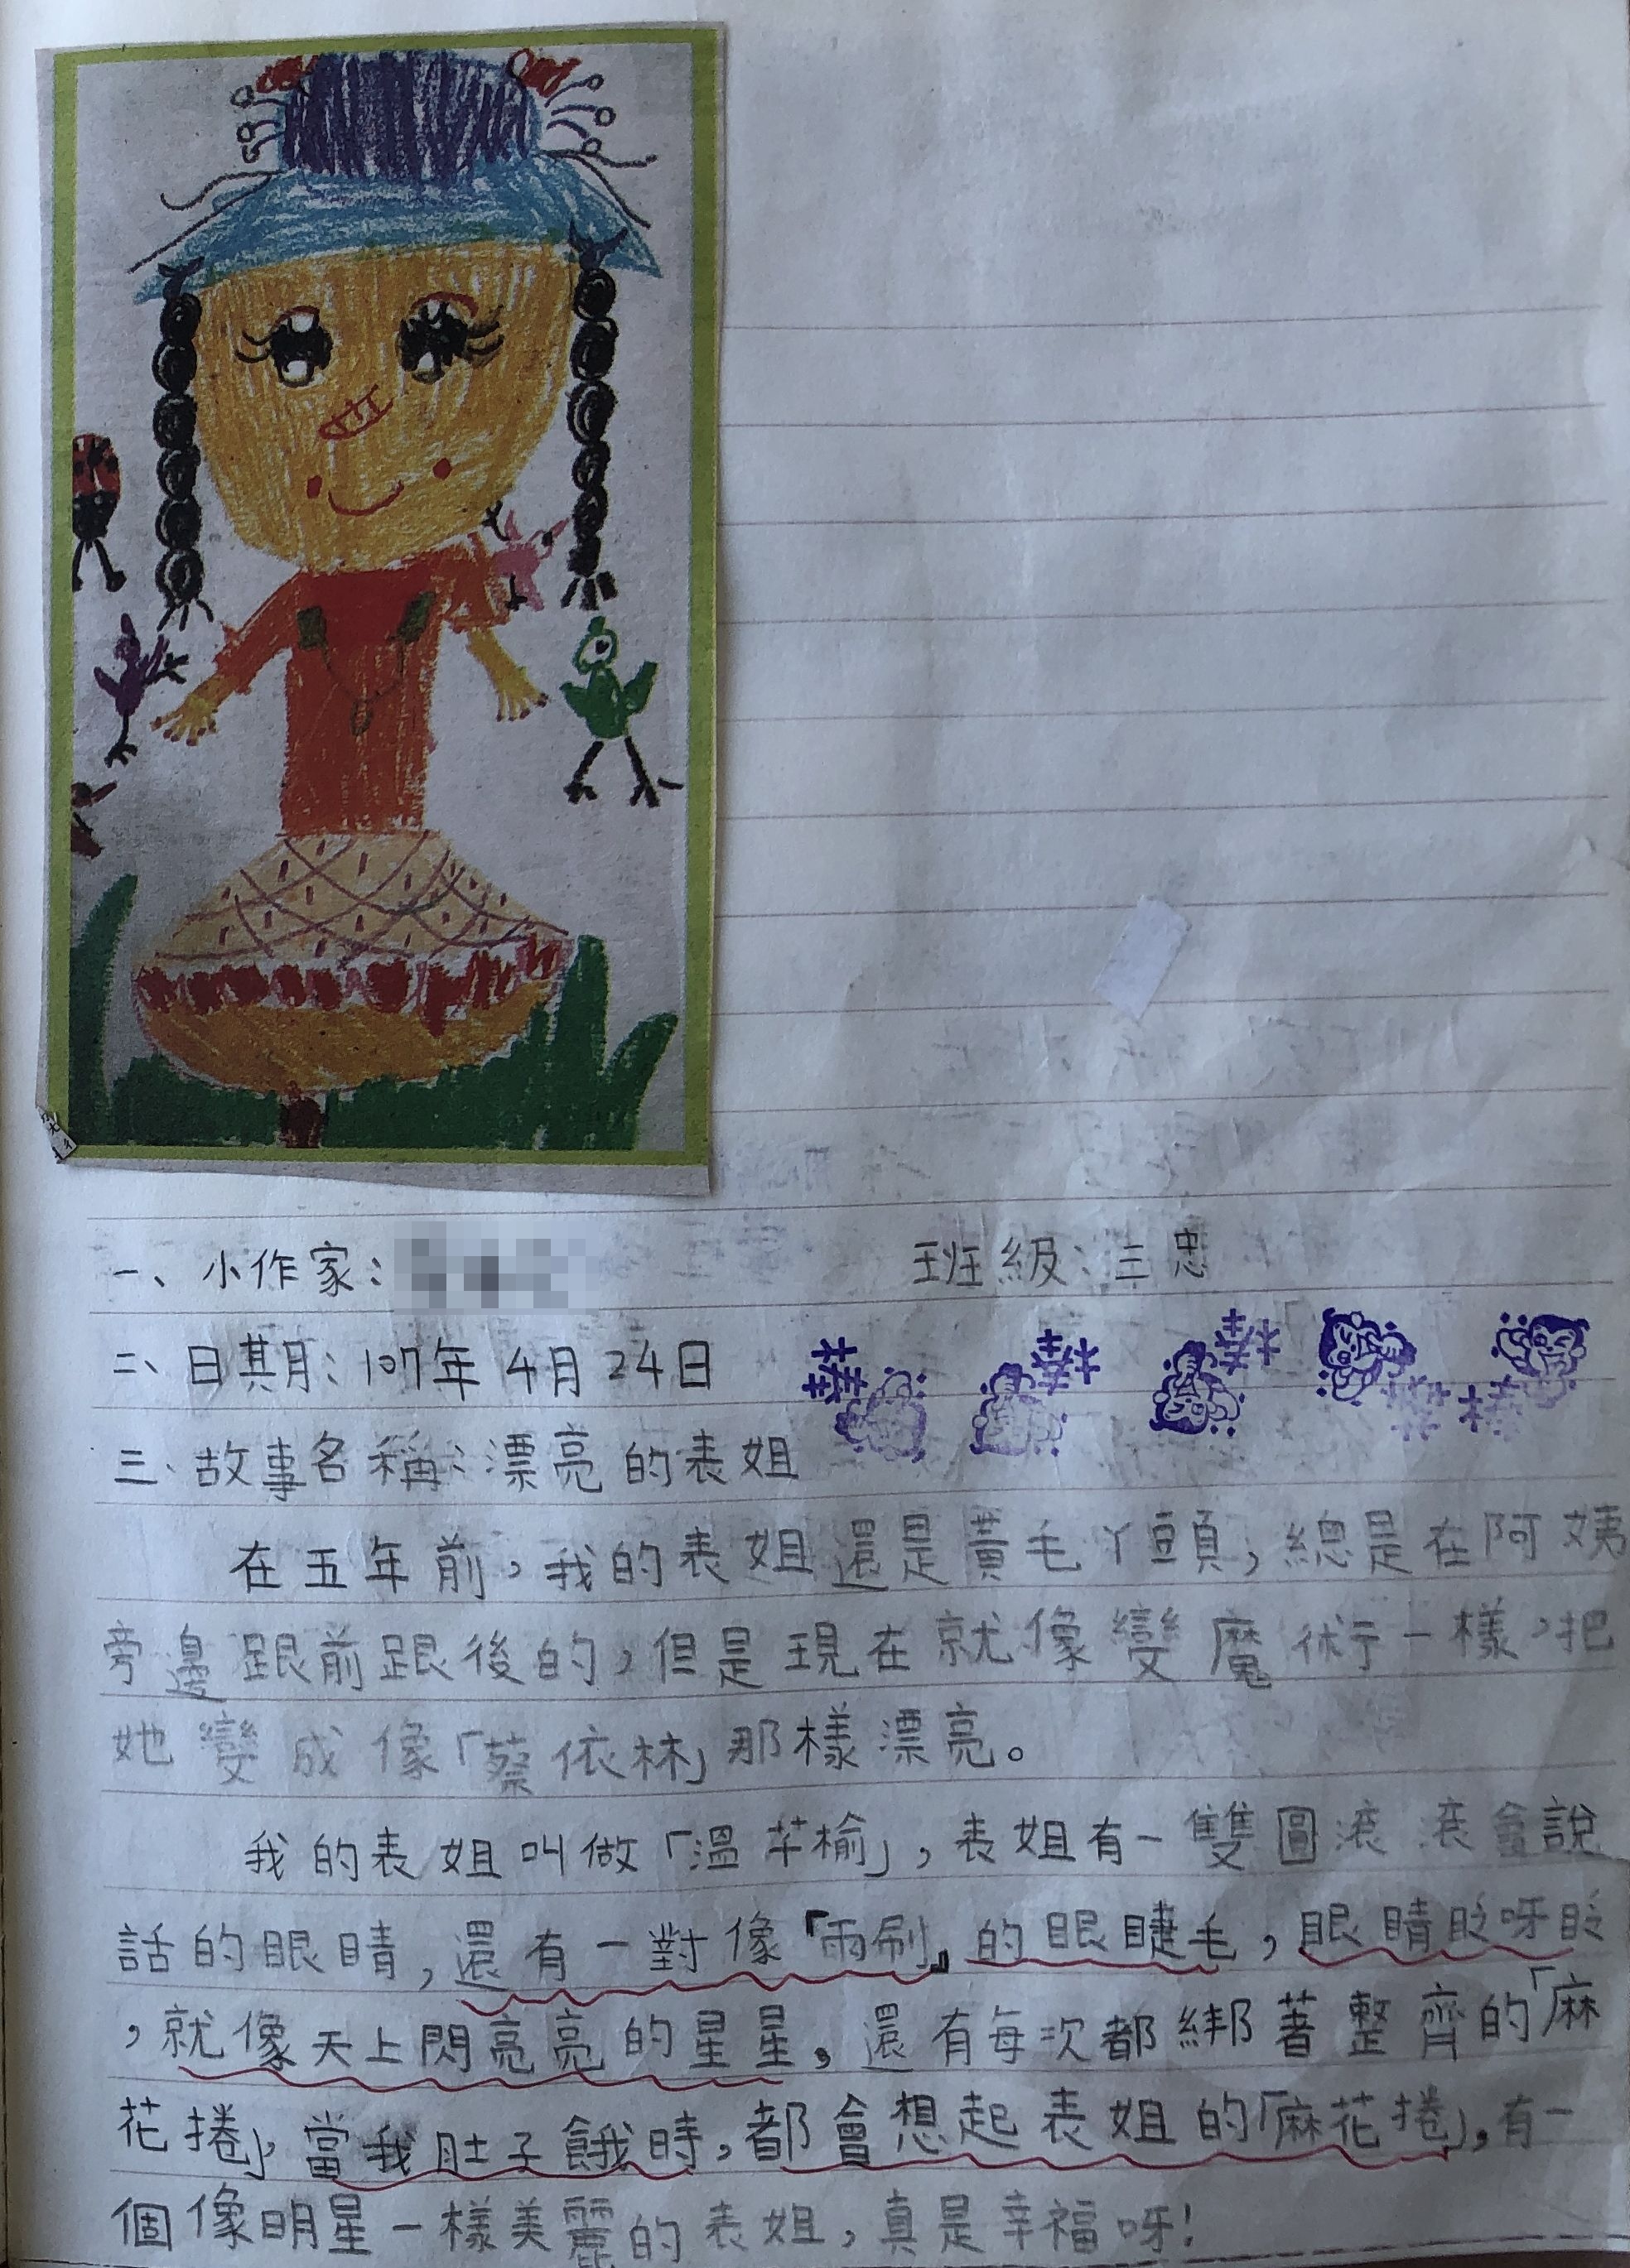 一、小作家： 班級：三忠
二、日期：107年4月24日
三、故事名稱：漂亮的表姐
在五年前，我的表姐還是黃毛丫頭，總是在阿姨
旁邊跟前跟後的，但是現在就像變魔術一樣，把
她變成像「蔡依林」那樣漂亮。
我的表姐叫做「溫芊榆」，表姐有一雙圓滾滾會說
話的眼睛，還有一對像「雨刷』的眼睫毛，眼睛眨呀眨
，就像天上閃亮亮的星星。還有每次都綁著整齊的「麻
花捲」，當我肚子餓時，都會想起表姐的「麻花捲」，有一
個像明星一樣美麗的表姐，真是幸福呀！